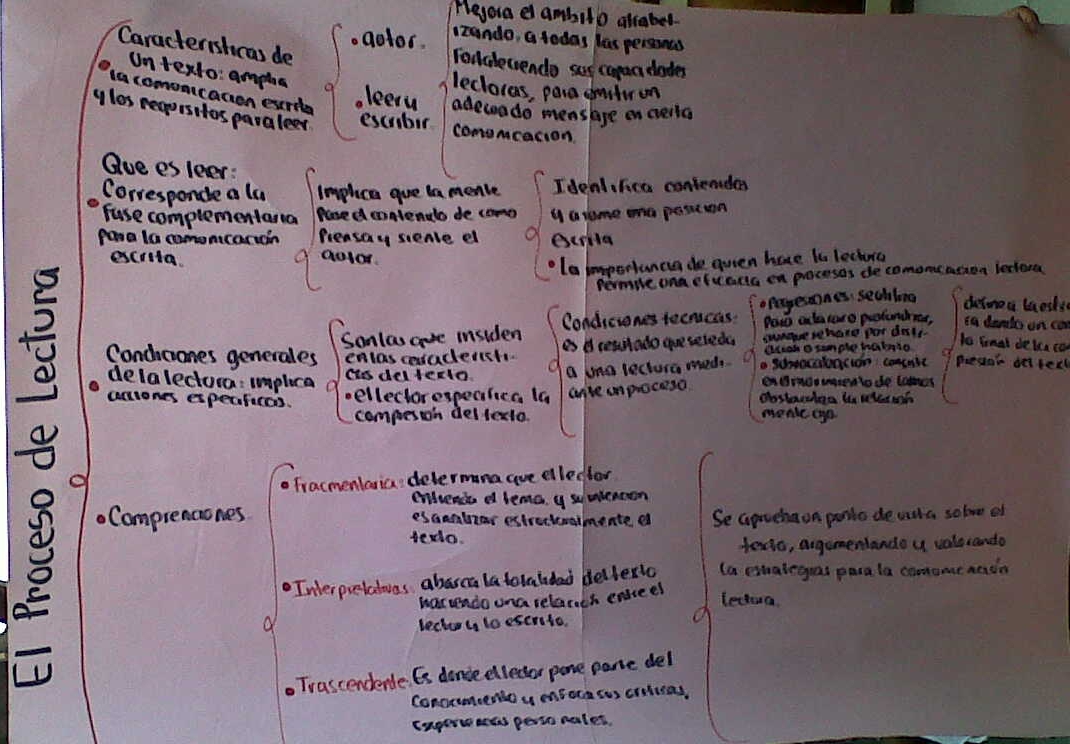 El Proceso de Lectura
Caracteristicas de
Un texto: amplia
la comunicacion escrita
y los requisitos para leer.
• autor.
• leer y
escribir.
Mejora el ambito alfabet-
izando, a todas las personas
Fortaleciendo sus capacidades
lectoras, para emitir un
adecuado mensaje en cierta
comunicacion.
Que es leer:
• Corresponde a la
fase complementaria
para la comunicación
escrita.
Implica que la mente
pase el contenido de como
Piensa y siente el
autor.
Identifica contenidos
y asume una posicion
escrita
• la importancia de quien hace la lectura
Permite una eficacia en procesos de comunicacion lectora
Condiciones generales
• de la lectura: implica
acciones especificas.
Son las que insiden
en las caracteristi-
cas del texto.
• el lector especifica la
compresión del texto.
Condiciones tecnicas:
es el resultado que se le da
a una lectura medi-
ante un proceso.
• Regresiones: se utiliza
para aclarar o profundizar,
aunque se hace por distr-
acción o simple habito.
• Subvocalización: consiste
en el movimiento de labios
obstaculiza la relación
mente ojo.
define a la
dando un
final de la
del
• Comprenciones
• Fracmentaria: determina que el lector
entienda el tema, y su intencion
es analizar estructuralmente el
texto.
• Interpretativas: abarca la totalidad del texto
haciendo una relación entre el
lector y lo escrito.
• Trascendente: Es donde el lector pone parte del
Conocimiento y enfoca sus criticas,
experiencias personales.
Se aprueba un punto de vista sobre el
texto, argumentando y valorando
la estrategias para la comunicación
lectora.